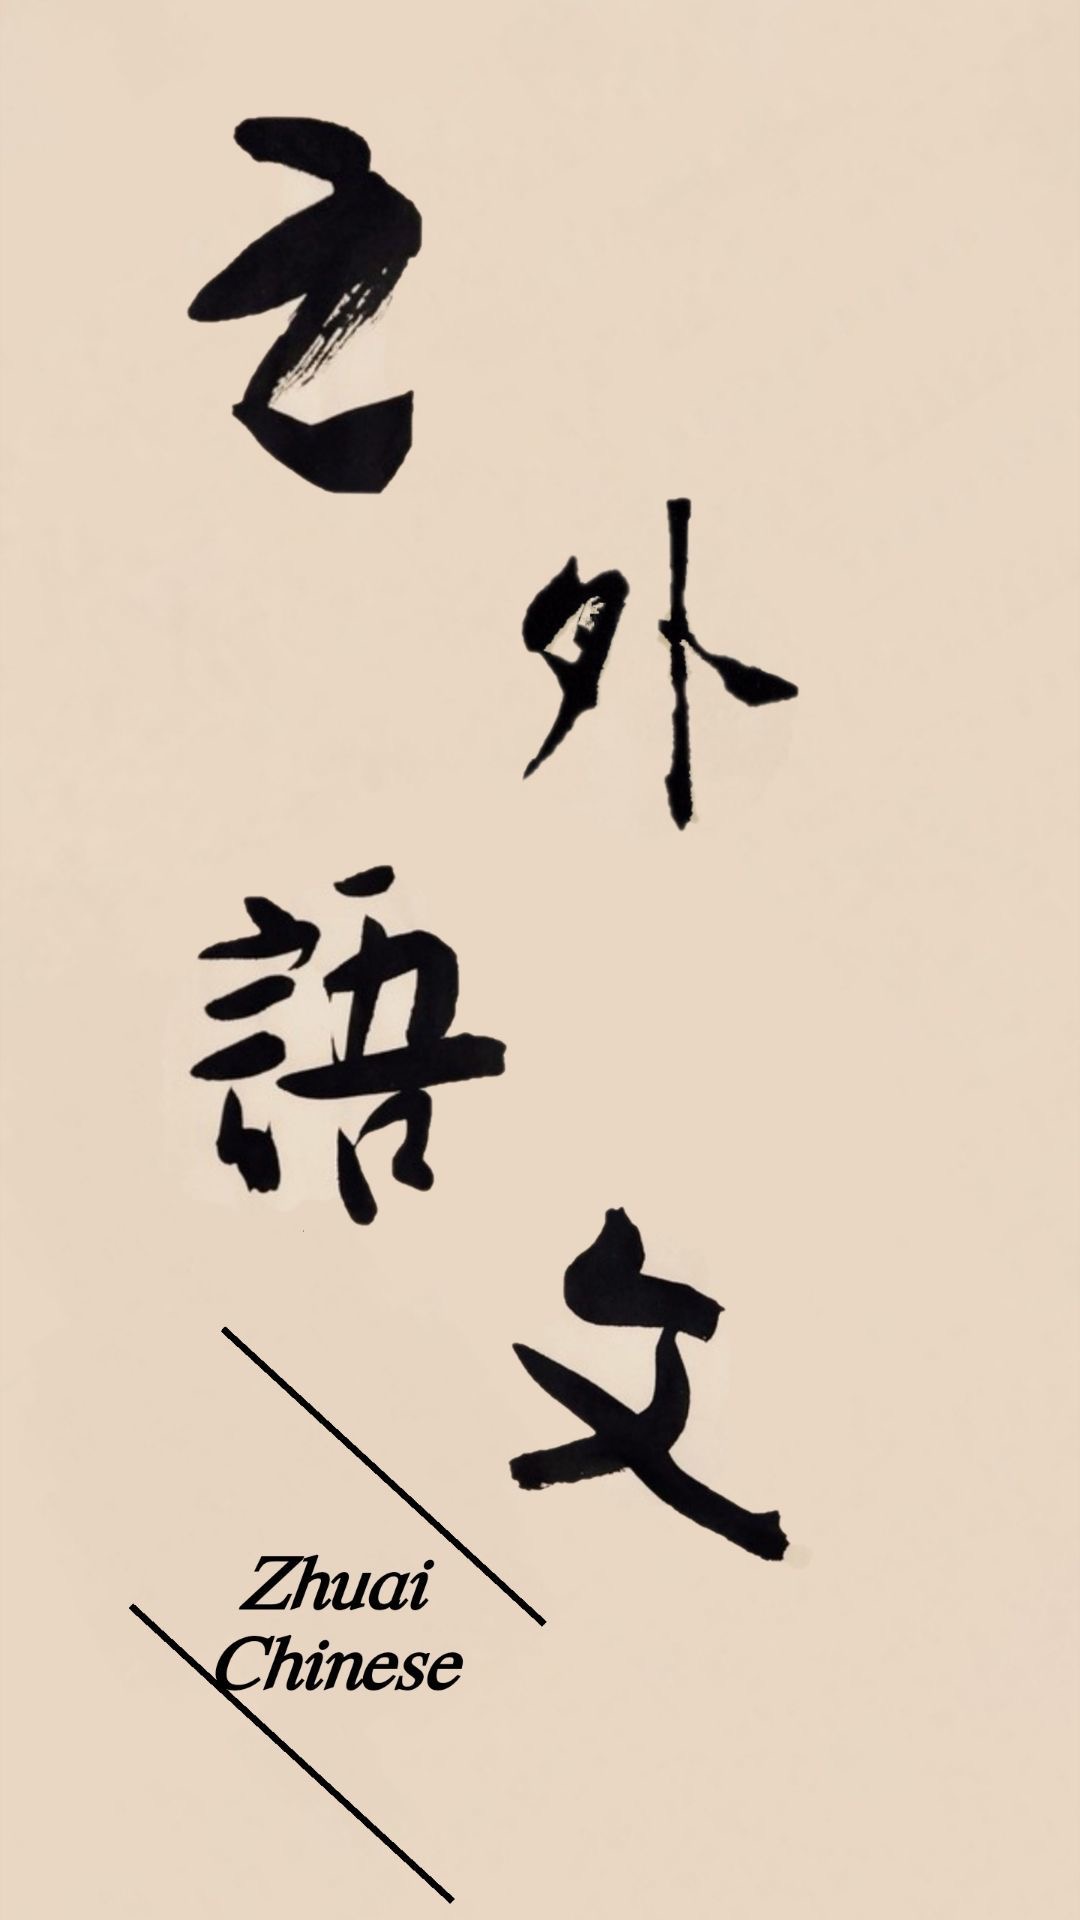 之
外
語
文
Zhuai
Chinese